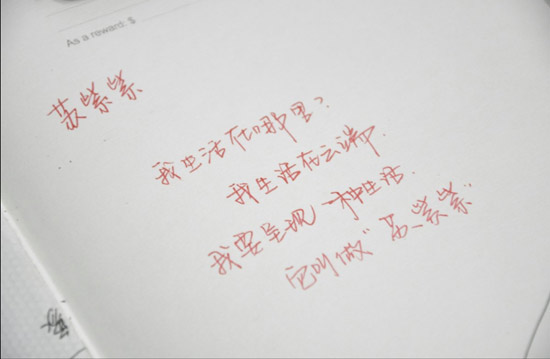 As a reward: $
苏紫紫
我生活在哪里？
我生活在云端.
我要呈现一种生活.
它叫做“苏紫紫”